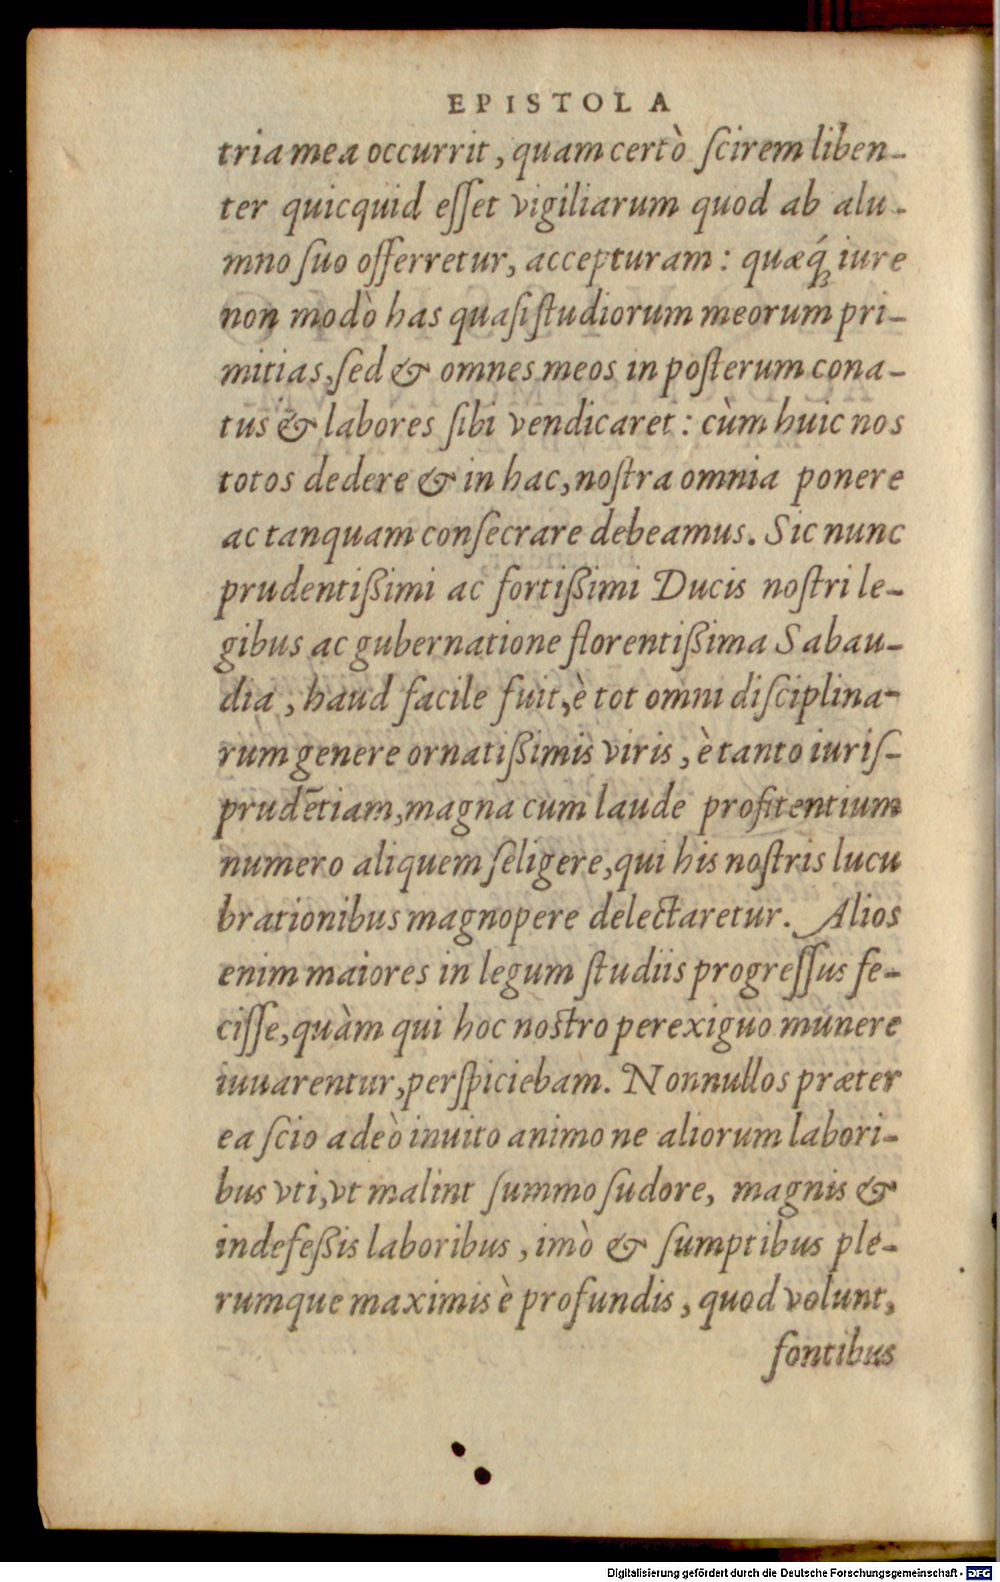 EPISTOLA
tria mea occurrit, quam certò ſcirem liben-
ter quicquid eſſet vigiliarum quod ab alu-
mno ſuo offerretur, accepturam: quæq́ꝫ iure
non modò has quaſi ſtudiorum meorum pri-
mitias, ſed & omnes meos in poſterum cona-
tus & labores ſibi vendicaret: cùm huic nos
totos dedere & in hac, noſtra omnia ponere
ac tanquam conſecrare debeamus. Sic nunc
prudentißimi ac fortißimi Ducis noſtri le-
gibus ac gubernatione florentißima Sabau-
dia, haud facile fuit, è tot omni diſciplina-
rum genere ornatißimis viris, è tanto iuriſ-
prudẽtiam, magna cum laude profitentium
numero aliquem ſeligere, qui his noſtris lucu
brationibus magnopere delectaretur. Alios
enim maiores in legum ſtudiis progreſſus fe-
ciſſe, quàm qui hoc noſtro perexiguo munere
iuuarentur, perſpiciebam. Nonnullos præter
ea ſcio adeò inuito animo ne aliorum labori-
bus vti, vt malint ſummo ſudore, magnis &
indefeßis laboribus, imò & ſumptibus ple-
rumque maximis è profundis, quod volunt,
fontibus
Digitalisierung gefördert durch die Deutsche Forschungsgemeinschaft - DFG